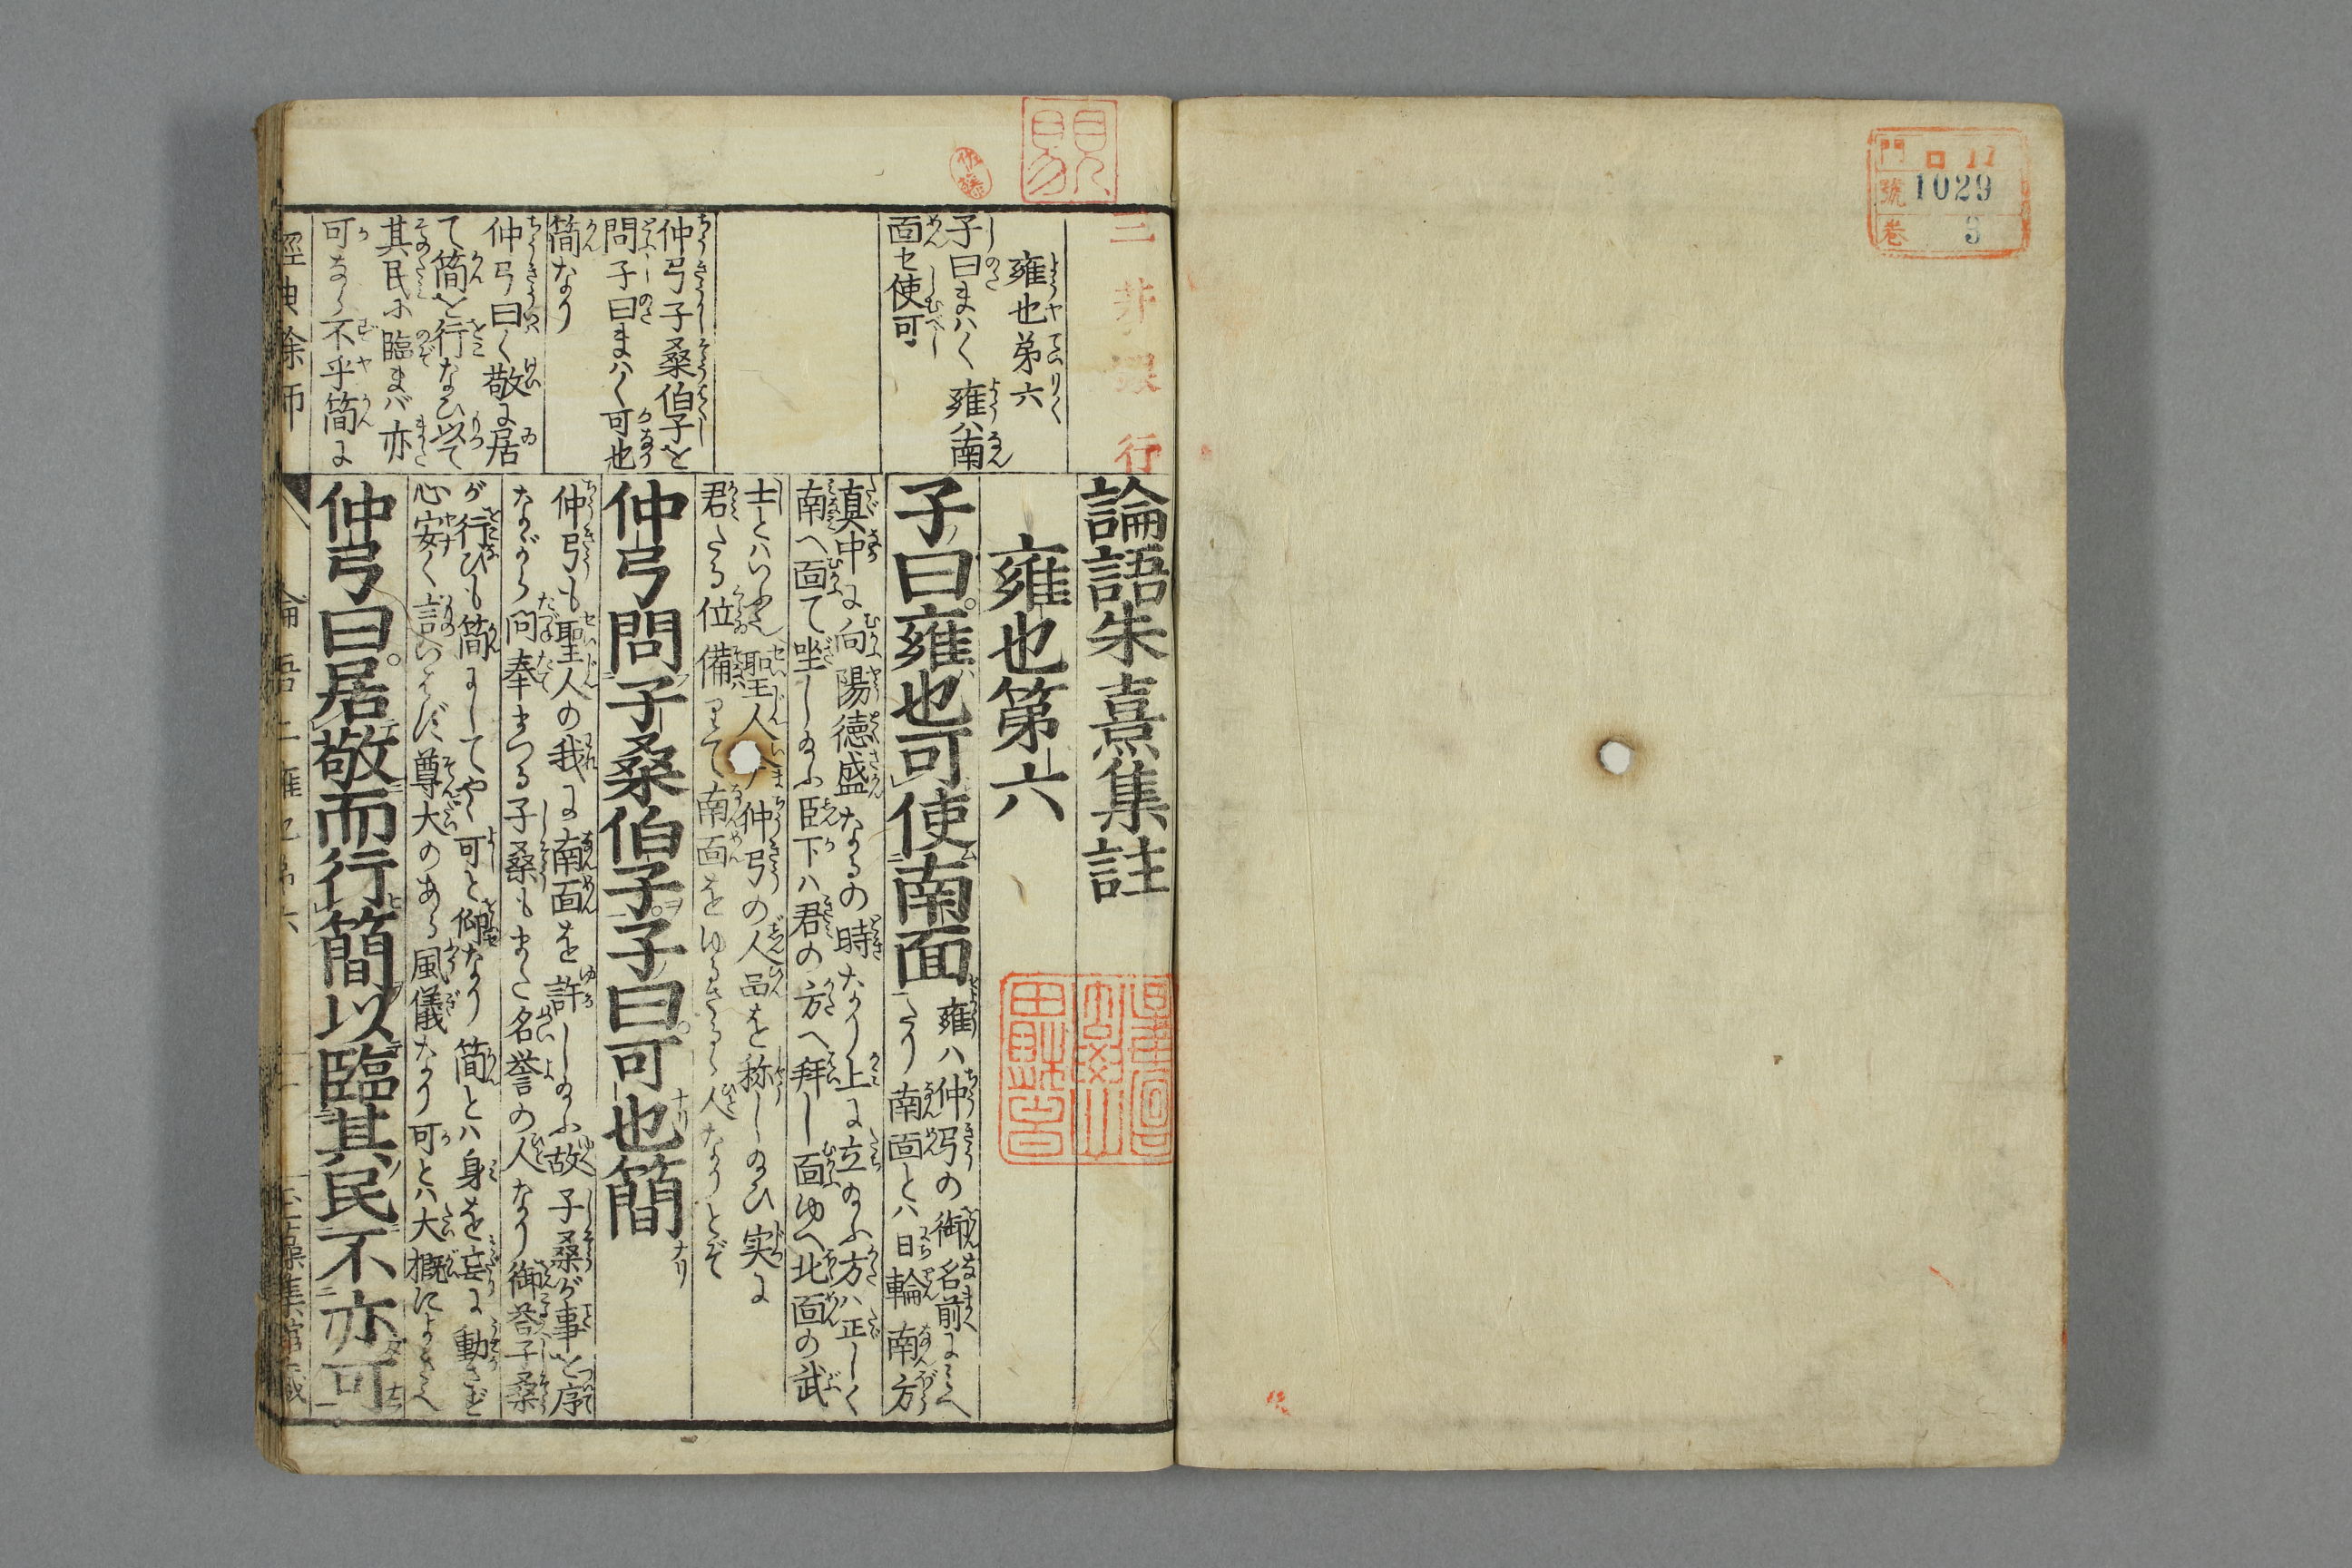 門
號 1029
卷 3
論語朱熹集註
雍也第六
雍也第六
子曰まハく雍ハ南
面セ使可
子曰雍也可使南面
雍ハ仲弓の御名前
南面とハ日輪南方
真中に向陽徳盛なるの時なり上に立給ふ方ハ正しく
南へ面て坐し給ふ臣下ハ君の方へ拝し面ゆへ北面の武
士とハいふ也聖人仲弓の人品を称し給ひ実に
君たる位備りて南面をゆるさるゝ人なりとぞ
仲弓子桑伯子を
問子曰まハく可也
簡なり
仲弓問子桑伯子子曰可也簡
仲弓も聖人の我に南面を許し給ふ故子桑が事を序
ながら問奉まつる子桑もまた名誉の人なり御答子桑
が行ひも簡にしてやゝ可と仰なり簡とハ身を妄に動さず
心安く言いはず尊大のある風儀なり可とハ大概によきさへ
仲弓曰く敬に居
て簡を行なひ以て
其民に臨まバ亦
可ならず不乎簡に
仲弓曰居敬而行簡以臨其民不亦可
經典余師